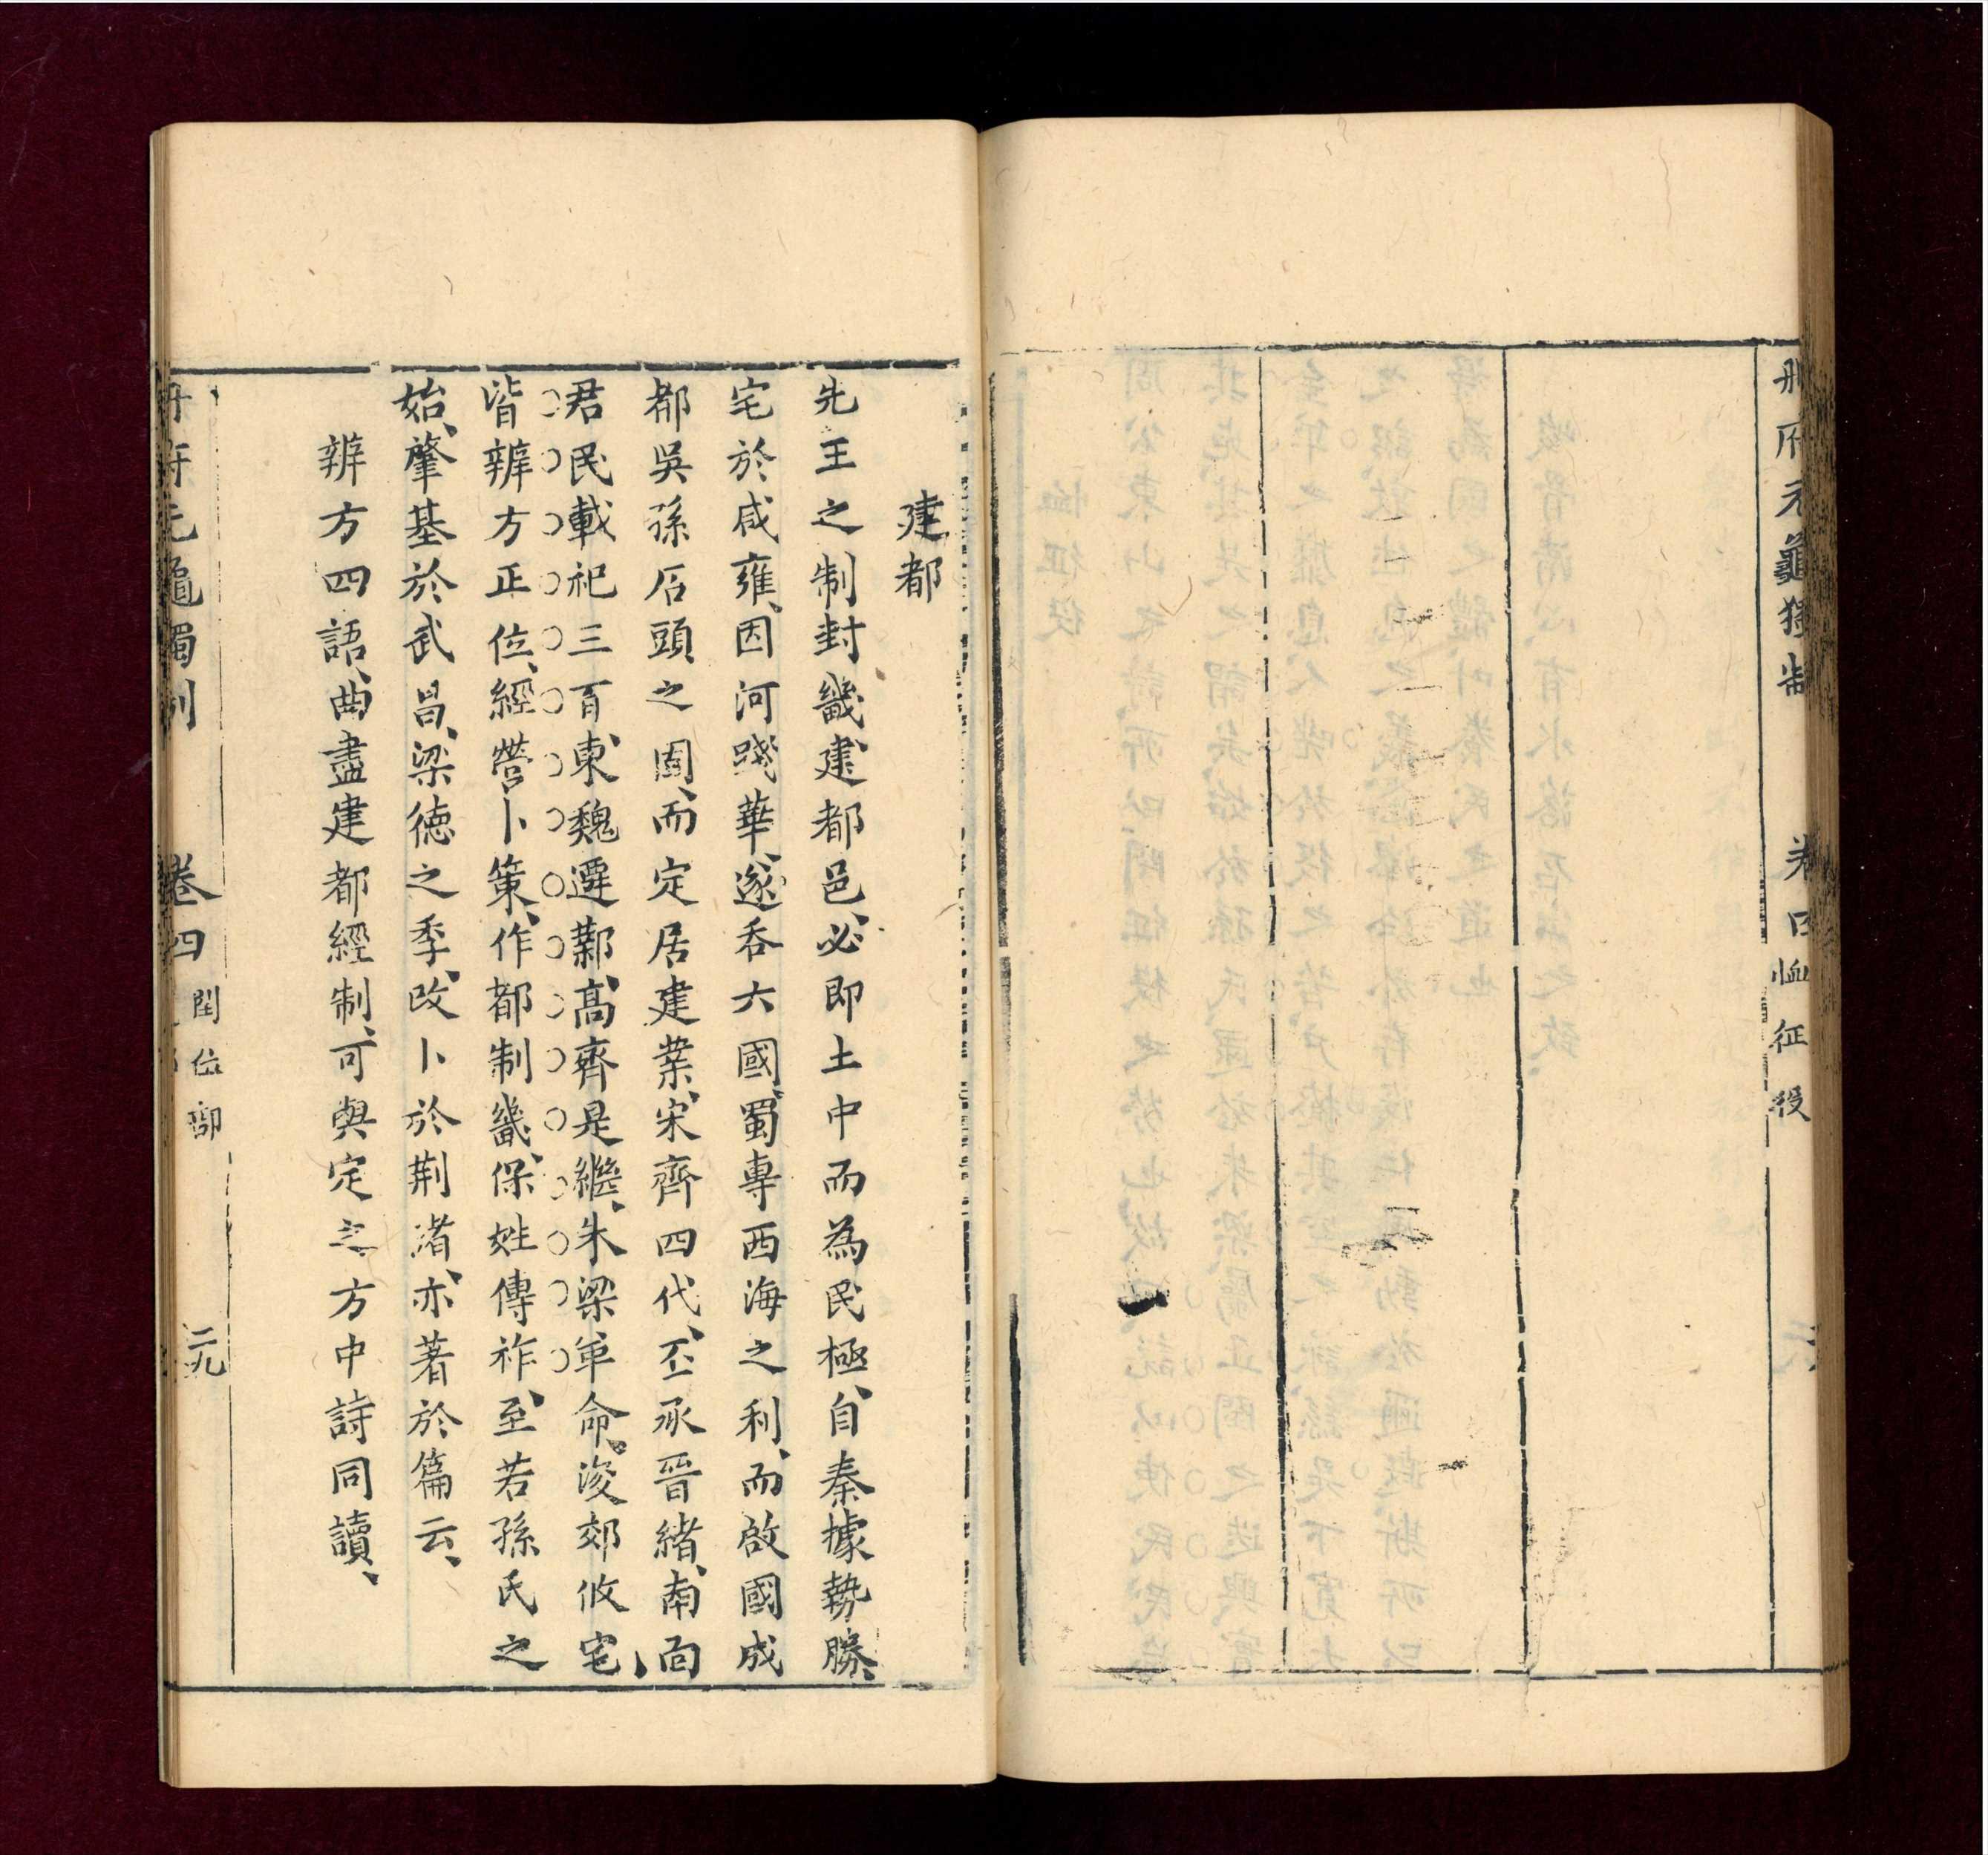 冊府元龜獨制
卷四
恤征役
建都
先王之制封畿建都邑、必即土中而為民極、自秦據勢勝、
宅於咸雍、因河踐華、遂吞六國、蜀專西海之利、而啟國成
都吳孫石頭之固、而定居建業、宋齊四代、丕承晉緒、南面
君民載祀三百、東魏遷鄴、高齊是繼、朱梁革命、浚郊攸宅、
皆辨方正位、經營卜策、作都制畿、保姓傳祚、至若孫氏之
始、肇基於武昌、梁德之季、改卜於荆渚、亦著於篇云、
辨方四語、曲盡建都經制、可與定之方中詩同讀、
冊府元龜獨制
卷四
閏位部
二九